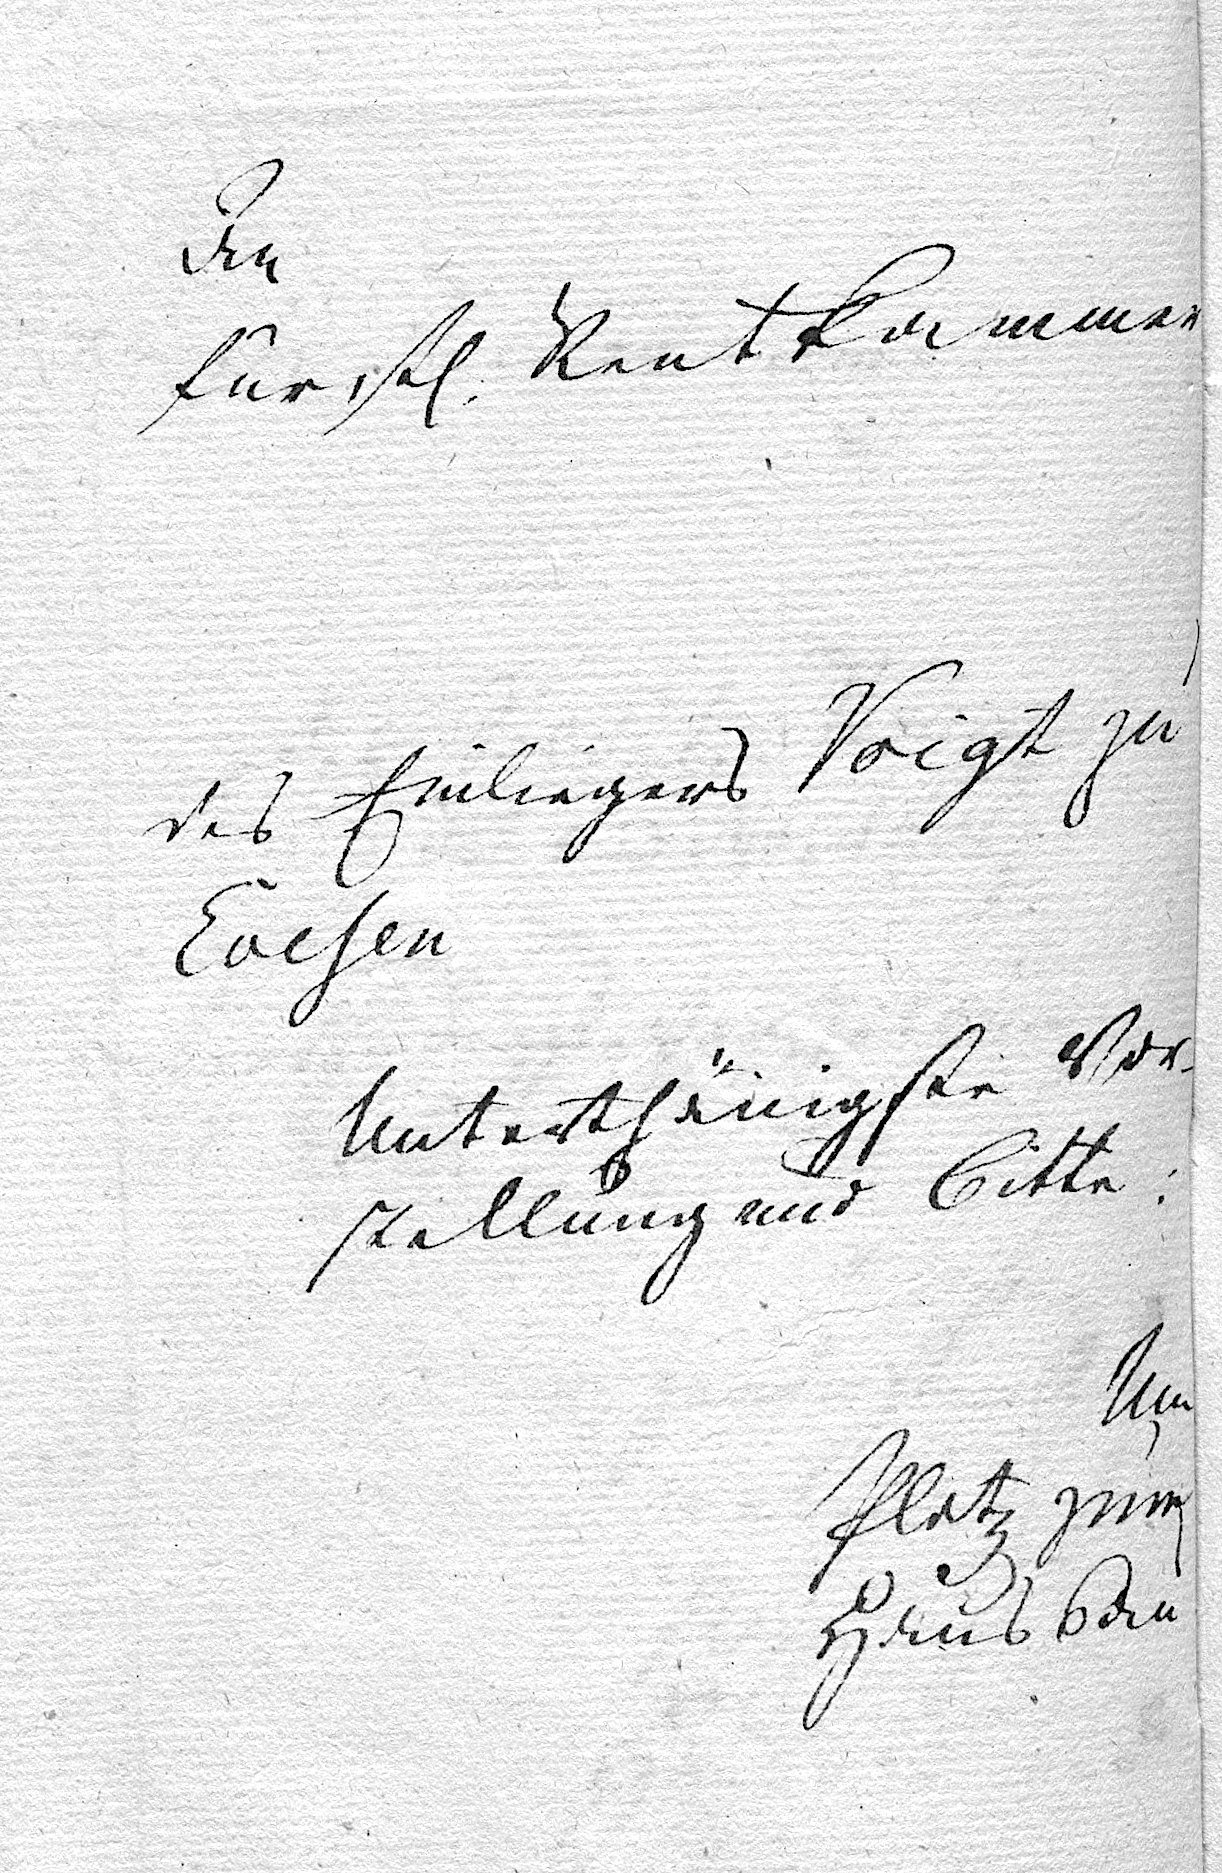 An
fürstl. Rentkammer
des Einliegers Voigt zu
Cochen
Unterthänigste Vor-
stellung und Bitte:
Um
Platz zum
Haus bau